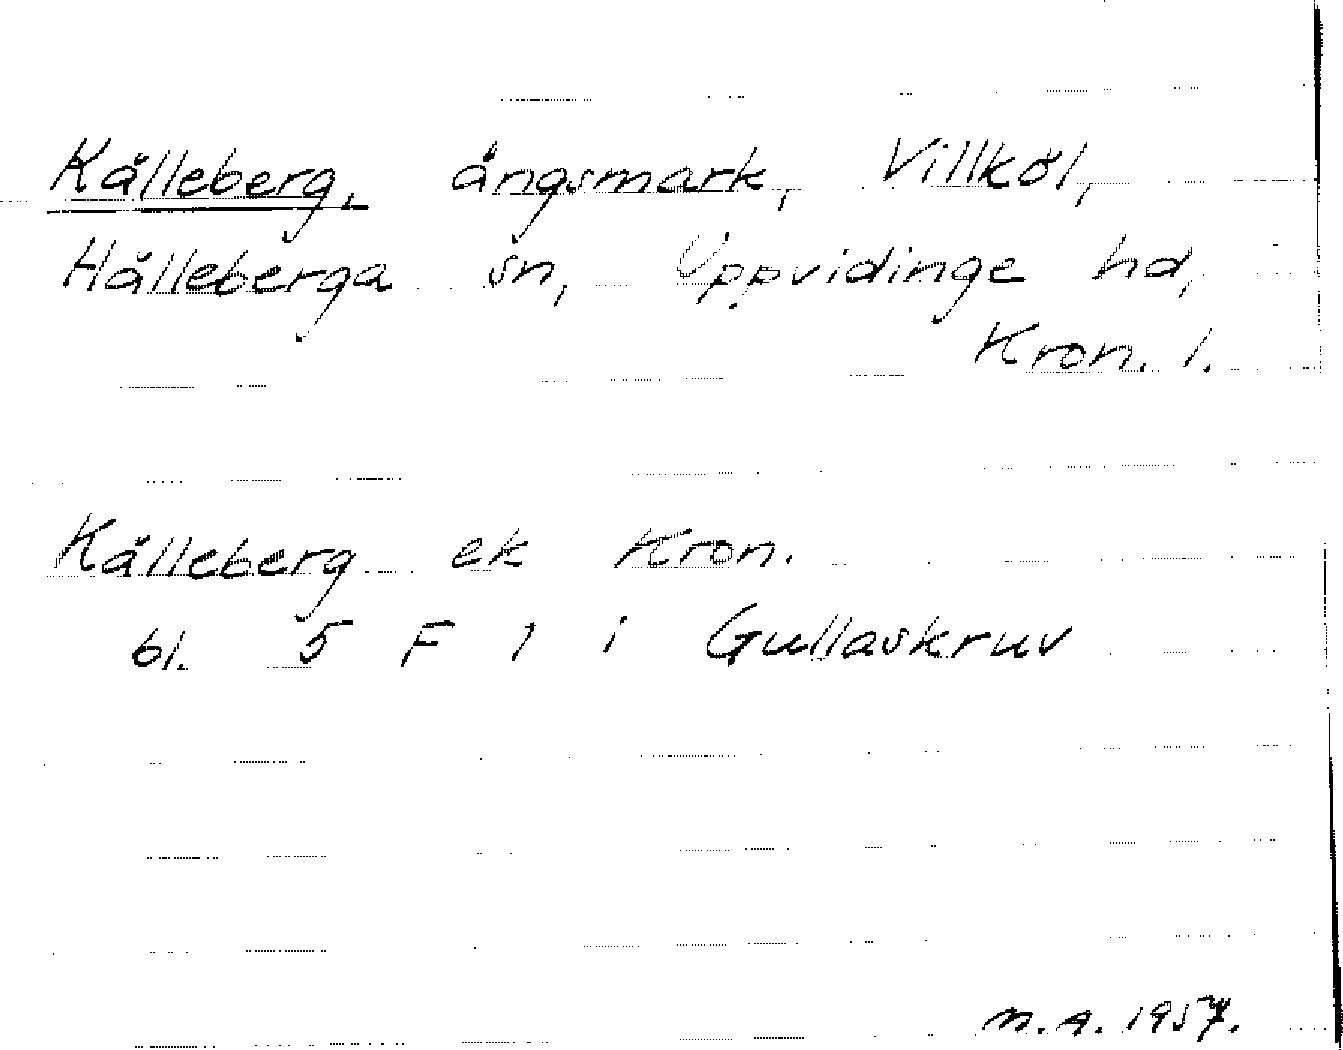 Källeberg, ängsmark, Villköl,
Hälleberga sn, Uppvidinge hd,
Kron. l.
Källeberg ek Kron.
bl. 5 F 1 i Gullaskruv
M.A. 1957.